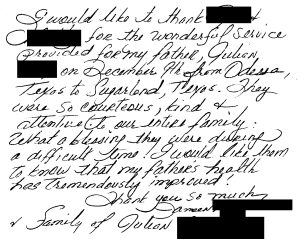 I would like to thank &
for the wonderful service
provided for my father, Julian
on December 9th from Odessa,
Texas to Sugarland, Texas. They
were so courteous, kind &
attentive to our entire family.
What a blessing they were during
a difficult time. I would like them
to know that my father's health
has tremendously improved!
Thank you so much,
& Family of Julian